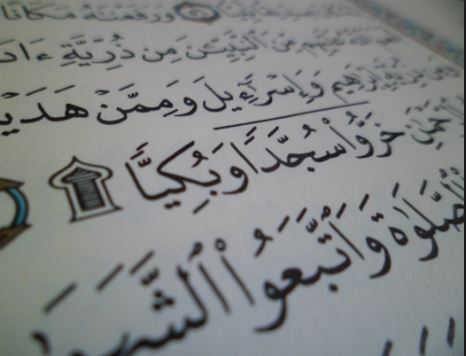 وَرَفَعْنَٰهُ مَكَانًا
مِّنَ ٱلنَّبِيِّـۧنَ مِن ذُرِّيَّةِ ءَادَ
ذُرِّيَّةِ إِبْرَٰهِيمَ وَإِسْرَٰٓءِيلَ وَمِمَّنْ هَدَيْ
خَرُّوا۟ سُجَّدًا وَبُكِيًّا ۩
ٱلصَّلَوٰةَ وَٱتَّبَعُوا۟ ٱلشَّهَ